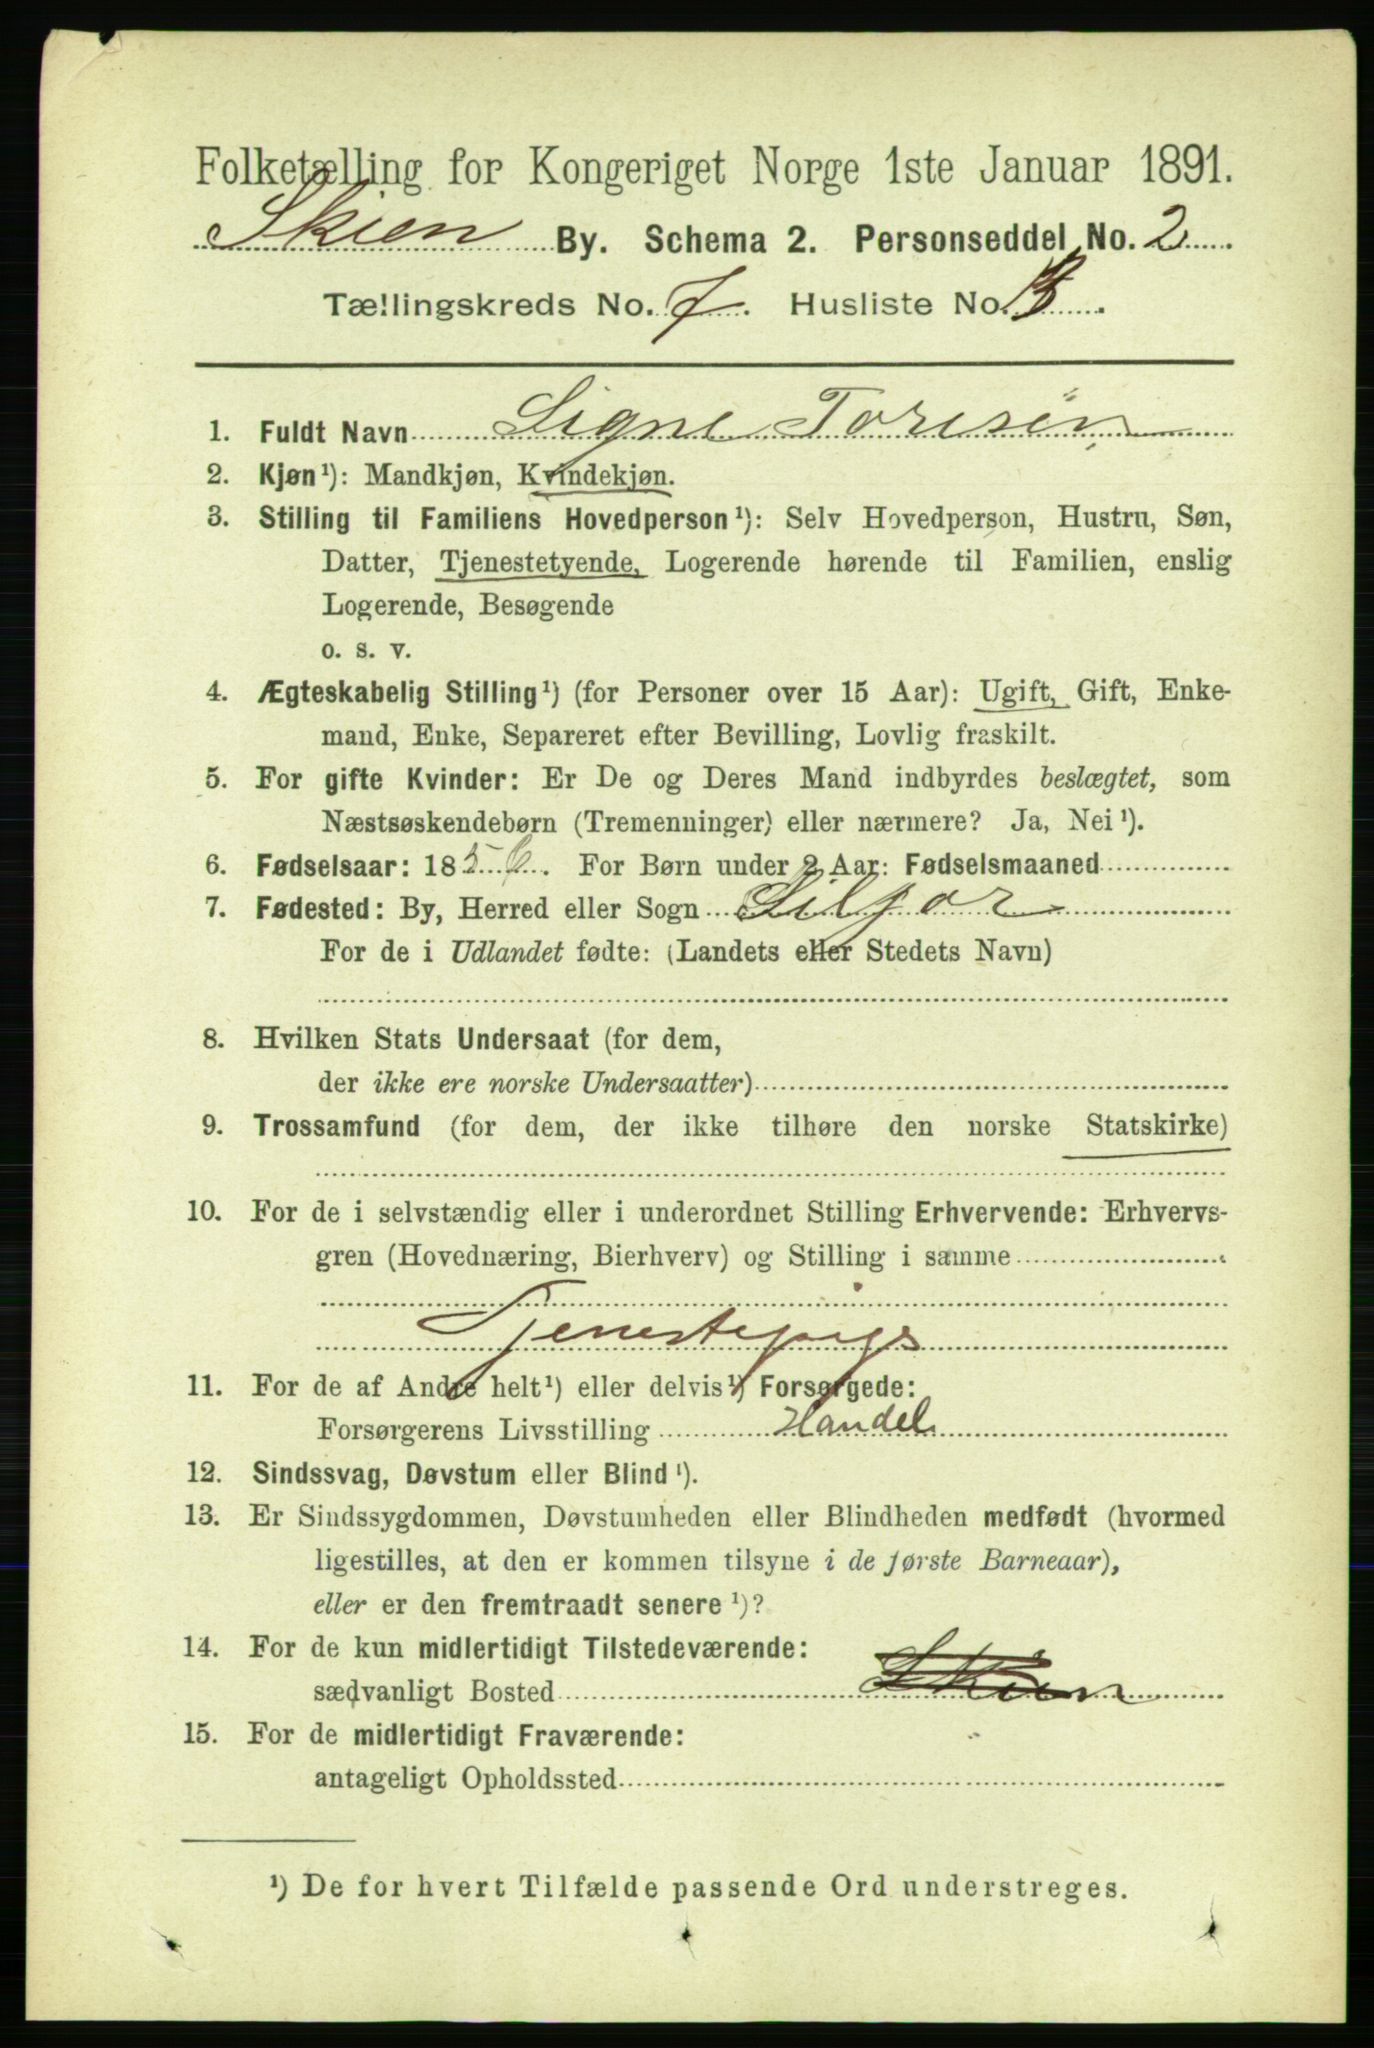 Folketælling for Kongeriget Norge 1ste Januar 1891.
Skien By. Schema 2. Personseddel No. 2
Tællingskreds No. 7. Husliste No.
1. Fuldt Navn Signe Toresen
2. Kjøn¹): Mandkjøn, Kvindekjøn.
3. Stilling til Familiens Hovedperson¹): Selv Hovedperson, Hustru, Søn,
Datter, Tjenestetyende, Logerende hørende til Familien, enslig
Logerende, Besøgende
o. s. v.
4. Ægteskabelig Stilling¹) (for Personer over 15 Aar): Ugift, Gift, Enke-
mand, Enke, Separeret efter Bevilling, Lovlig fraskilt.
5. For gifte Kvinder: Er De og Deres Mand indbyrdes beslægtet, som
Næstsøskendebørn (Tremenninger) eller nærmere? Ja, Nei¹).
6. Fødselsaar: 1856. For Børn under 2 Aar: Fødselsmaaned
7. Fødested: By, Herred eller Sogn Siljor
For de i Udlandet fødte: (Landets eller Stedets Navn)
8. Hvilken Stats Undersaat (for dem,
der ikke ere norske Undersaatter)
9. Trossamfund (for dem, der ikke tilhøre den norske Statskirke)
10. For de i selvstændig eller i underordnet Stilling Erhvervende: Erhvervs-
gren (Hovednæring, Bierhverv) og Stilling i samme
Tjenestepige
11. For de af Andre helt¹) eller delvis¹) Forsørgede:
Forsørgerens Livsstilling Handel
12. Sindssvag, Døvstum eller Blind¹).
13. Er Sindssygdommen, Døvstumheden eller Blindheden medfødt (hvormed
ligestilles, at den er kommen tilsyne i de første Barneaar),
eller er den fremtraadt senere¹)?
14. For de kun midlertidigt Tilstedeværende:
sædvanligt Bosted Skien
15. For de midlertidigt Fraværende:
antageligt Opholdssted
¹) De for hvert Tilfælde passende Ord understreges.